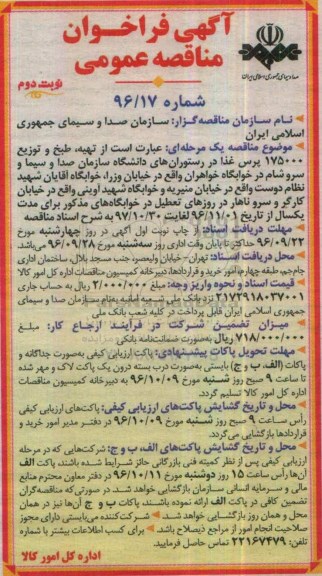 آگهی فراخوان
مناقصه عمومی
صدا و سیمای جمهوری اسلامی ایران
نوبت دوم
شماره ۹۶/۱۷
نام سازمان مناقصه‌گزار: سازمان صدا و سیمای جمهوری
اسلامی ایران
موضوع مناقصه یک مرحله‌ای: عبارت است از تهیه، طبخ و توزیع
۱۷۵۰۰۰ پرس غذا در رستوران‌های دانشگاه سازمان صدا و سیما و
سرو شام در خوابگاه خواهران واقع در خیابان وزرا، خوابگاه آقایان شهید
نظام دوست واقع در خیابان منیریه و خوابگاه شهید آوینی واقع در خیابان
کارگر و سرو ناهار در روزهای تعطیل در خوابگاه‌های مذکور برای مدت
یکسال از تاریخ ۹۶/۱۱/۰۱ لغایت ۹۷/۱۰/۳۰ به شرح اسناد مناقصه
مهلت دریافت اسناد: از چاپ نوبت اول آگهی در روز چهارشنبه مورخ
۹۶/۰۹/۲۲ حداکثر تا پایان وقت اداری روز سه‌شنبه مورخ ۹۶/۰۹/۲۸ می‌باشد.
محل دریافت اسناد: تهران - خیابان ولیعصر، جنب مسجد بلال، ساختمان اداری
جام‌جم، طبقه چهارم، امور خرید و قراردادها، دبیرخانه کمیسیون مناقصات اداره کل امور کالا
قیمت اسناد و نحوه واریز وجه: مبلغ ۲/۰۰۰/۰۰۰ ریال به حساب جاری
۲۱۷۳۹۱۸۰۳۷۰۰۱ نزد بانک ملی شعبه امانیه به‌نام سازمان صدا و سیمای
جمهوری اسلامی ایران قابل پرداخت در کلیه شعب بانک ملی
میزان تضمین شرکت در فرآیند ارجاع کار: مبلغ
۷۱۸/۰۰۰/۰۰۰ ریال به‌صورت ضمانت‌نامه بانکی
مهلت تحویل پاکات پیشنهادی: پاکت ارزیابی کیفی به‌صورت جداگانه و
پاکات (الف، ب و ج) بایستی به‌صورت درب بسته درون یک پاکت لاک و مهر شده
تا ساعت ۹ صبح روز شنبه مورخ ۹۶/۱۰/۰۹ به دبیرخانه کمیسیون مناقصات
اداره کل امور کالا تسلیم گردد.
محل و تاریخ گشایش پاکت‌های ارزیابی کیفی: پاکت‌های ارزیابی کیفی
رأس ساعت ۹ صبح روز شنبه مورخ ۹۶/۱۰/۰۹ در دفتر مدیر امور خرید و
قراردادها بازگشایی می‌گردد.
محل و تاریخ گشایش پاکت‌های الف، ب و ج: شرکت‌هایی که در مرحله
ارزیابی کیفی پس از نظر کمیته فنی بازرگانی حائز شرایط شده باشند، پاکت الف
آن‌ها رأس ساعت ۱۵ روز دوشنبه مورخ ۹۶/۱۰/۱۱ در دفتر معاون محترم منابع
مالی و سرمایه انسانی سازمان بازگشایی خواهد شد. در صورتی که مناقصه‌گران
تضمین کافی در پاکت الف ارائه نموده باشند، پاکات ب و ج آن‌ها نیز در همان
محل و همان روز بازگشایی خواهد شد. شرکت‌کننده می‌بایستی دارای مجوز
صلاحیت انجام امور از مراجع ذیصلاح باشد. برای کسب اطلاعات بیشتر با شماره
تلفن: ۲۲۱۶۷۴۷۹ تماس حاصل فرمایید.
اداره کل امور کالا